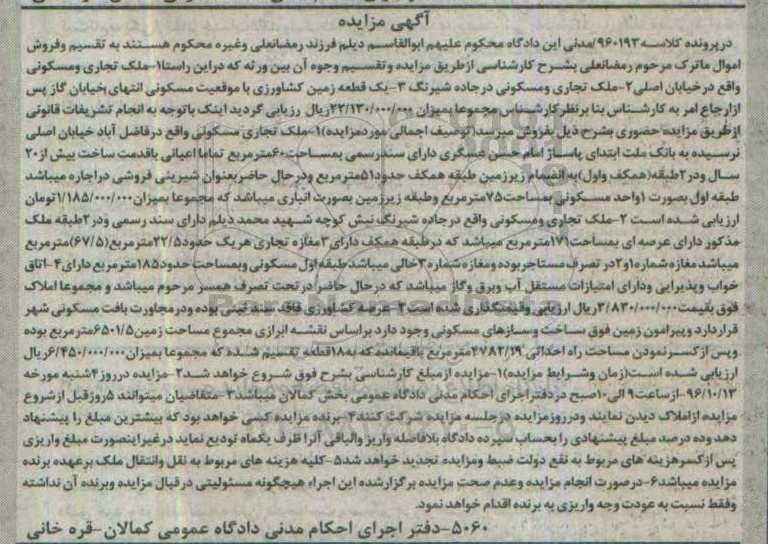 آگهی مزایده
درپرونده کلاسه۹۶۰۱۹۳/مدنی این دادگاه محکوم علیهم ابوالقاسم دیلم فرزند رمضانعلی وغیره محکوم هستند به تقسیم وفروش
اموال ماترک مرحوم رمضانعلی بشرح کارشناسی ازطریق مزایده وتقسیم وجوه آن بین ورثه که دراین راستا۱-ملک تجاری ومسکونی
واقع درخیابان اصلی۲-ملک تجاری ومسکونی درجاده شیرنگ ۳-یک قطعه زمین کشاورزی با موقعیت مسکونی انتهای بخیابان گاز پس
ازارجاع امر به کارشناس بنا برنظرکارشناس مجموعا بمیزان ۲۲/۱۳۰/۰۰۰/۰۰۰ریال رزیابی گردید اینک باتوجه به انجام تشریفات قانونی
ازطریق مزایده حضوری بشرح ذیل بفروش میرسد(توصیف اجمالی موردمزایده)۱-ملک تجاری مسکونی واقع درفاضل آباد خیابان اصلی
نرسیده به بانک ملت ابتدای پاساژ امام حسن عسگری دارای سندرسمی بمساحت۶۰مترمربع تماما اعیانی باقدمت ساخت بیش از۲۰
سال ودر۲طبقه(همکف واول)به انضمام زیرزمین طبقه همکف حدود۵۱مترمربع ودرحال حاضربعنوان شیرینی فروشی دراجاره میباشد
طبقه اول بصورت ۱واحد مسکونی بمساحت۷۵مترمربع وطبقه زیرزمین بصورت انباری میباشد که مجموعا بمیزان۱/۱۸۵/۰۰۰/۰۰۰تومان
ارزیابی شده است ۲-ملک تجاری ومسکونی واقع درجاده شیرنگ نبش کوچه شهید محمد دیلم دارای سند رسمی ودر۲طبقه ملک
مذکور دارای عرصه ای بمساحت۱۷۱مترمربع میباشد که درطبقه همکف دارای۳مغازه تجاری هریک حدود۲۲/۵مترمربع(۶۷/۵)مترمربع
میباشد مغازه شماره۱و۲در تصرف مستاجربوده ومغازه شماره۳خالی میباشد طبقه اول مسکونی وبمساحت حدود۱۸۵مترمربع دارای۴-اتاق
خواب وپذیرایی ودارای امتیازات مستقل آب وبرق وگاز میباشد که درحال حاضر درتحت تصرف همسر مرحوم میباشد و مجموعا املاک
فوق بقیمت۳/۸۳۰/۰۰۰/۰۰۰ریال ارزیابی وقیمتگذاری شده است۳-عرصه کشاورزی فاقد سند ثبتی بوده ودرمجاورت بافت مسکونی شهر
قراردارد وپیرامون زمین فوق ساخت وسازهای مسکونی وجود دارد براساس نقشه ابرازی مجموع مساحت زمین۶۵۰۱/۵مترمربع بوده
وپس ازکسرنمودن مساحت راه احداثی ۴۷۸۲/۱۹مترمربع باقیمانده که به۱۸قطعه تقسیم شده که مجموعا بمیزان۶/۴۵۰/۰۰۰/۰۰۰ریال
ارزیابی شده است(زمان وشرایط مزایده)۱-مزایده ازمبلغ کارشناسی بشرح فوق شروع خواهد شد۲-مزایده درروز۴شنبه مورخه
۹۶/۱۰/۱۳-ازساعت۹ الی۱۰صبح دردفتراجرای احکام مدنی دادگاه عمومی بخش کمالان میباشد۳-متقاضیان میتوانند ۵روزقبل ازشروع
مزایده ازاملاک دیدن نمایند ودرروزمزایده درجلسه مزایده شرکت کنند۴-برنده مزایده کسی خواهد بود که بیشترین مبلغ را پیشنهاد
دهد وده درصد مبلغ پیشنهادی را بحساب سپرده دادگاه بلافاصله واریز والباقی آنرا ظرف یکماه تودیع نماید درغیراینصورت مبلغ واریزی
پس ازکسرهزینه های مربوط به نفع دولت ضبط ومزایده تجدید خواهد شد۵-کلیه هزینه های مربوط به نقل وانتقال ملک برعهده برنده
مزایده میباشد۶-درصورت انجام مزایده وعدم صحت مزایده برگزارشده این اجراء هیچگونه مسئولیتی درقبال مزایده وبرنده آن نداشته
وفقط نسبت به عودت وجه واریزی به برنده اقدام خواهد نمود.
۵۰۶۰-دفتر اجرای احکام مدنی دادگاه عمومی کمالان-قره خانی